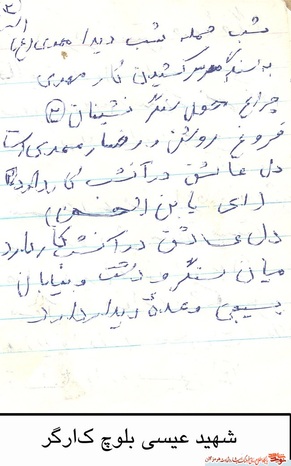 شب حمله شب دیدار مهدی (عج)
به سنگر سر کشیدن کار مهدی
چراغ محفل سنگر نشینان (۲)
فروغ روشن رخسار مهدی است
دل عاشق در آتش کار دارد
(ای یابن الحسن)
دل عاشق در آتش کار دارد
میان سنگر و دشت و بیابان
بسیجی وعدهٔ دیدار دارد
شهید عیسی بلوچ کارگر